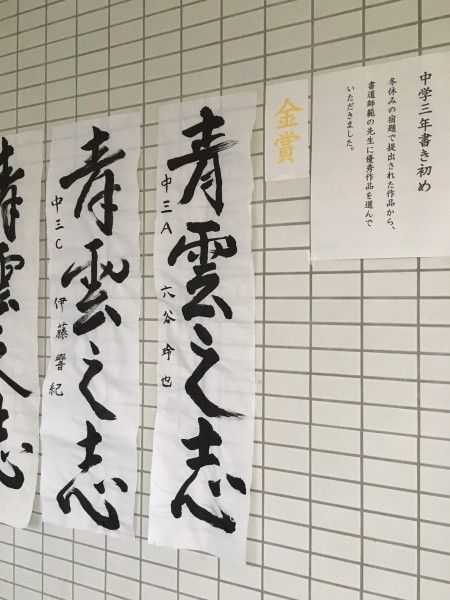 中学三年書き初め
冬休みの宿題で提出された作品から、
書道師範の先生に優秀作品を選んで
いただきました。
金賞
青雲之志
中三A 六谷玲也
青雲之志
中三C 伊藤響紀
青雲之志